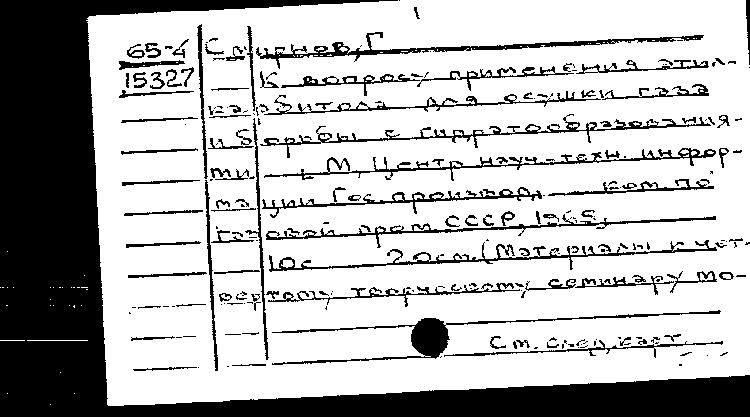 65-4 Смирнов, Г
15327 К вопросу применения этил-
карбитола для осушки газа
и борьбы с гидратообразования-
ми М, Центр науч-техн. инфор-
мации Гос. производ. ком. по
газовой пром. СССР, 1965,
10с 20см. (Материалы к чет-
вертому творческому семинару мо-
См. след. карт.